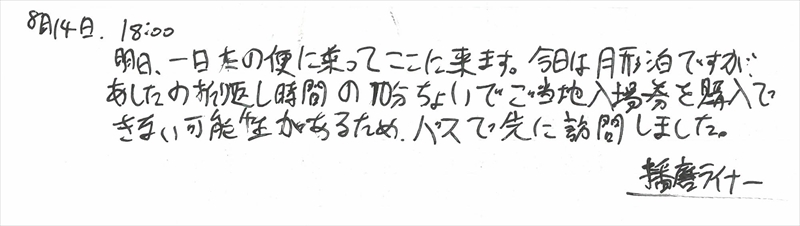 8月14日. 18:00
明日、一日一本の便に乗ってここに来ます。今日は月形泊ですが、
あしたの折り返し時間の10分ちょいでご当地入場券を購入で
きない可能性があるため、バスで先に訪問しました。
播磨ライナー